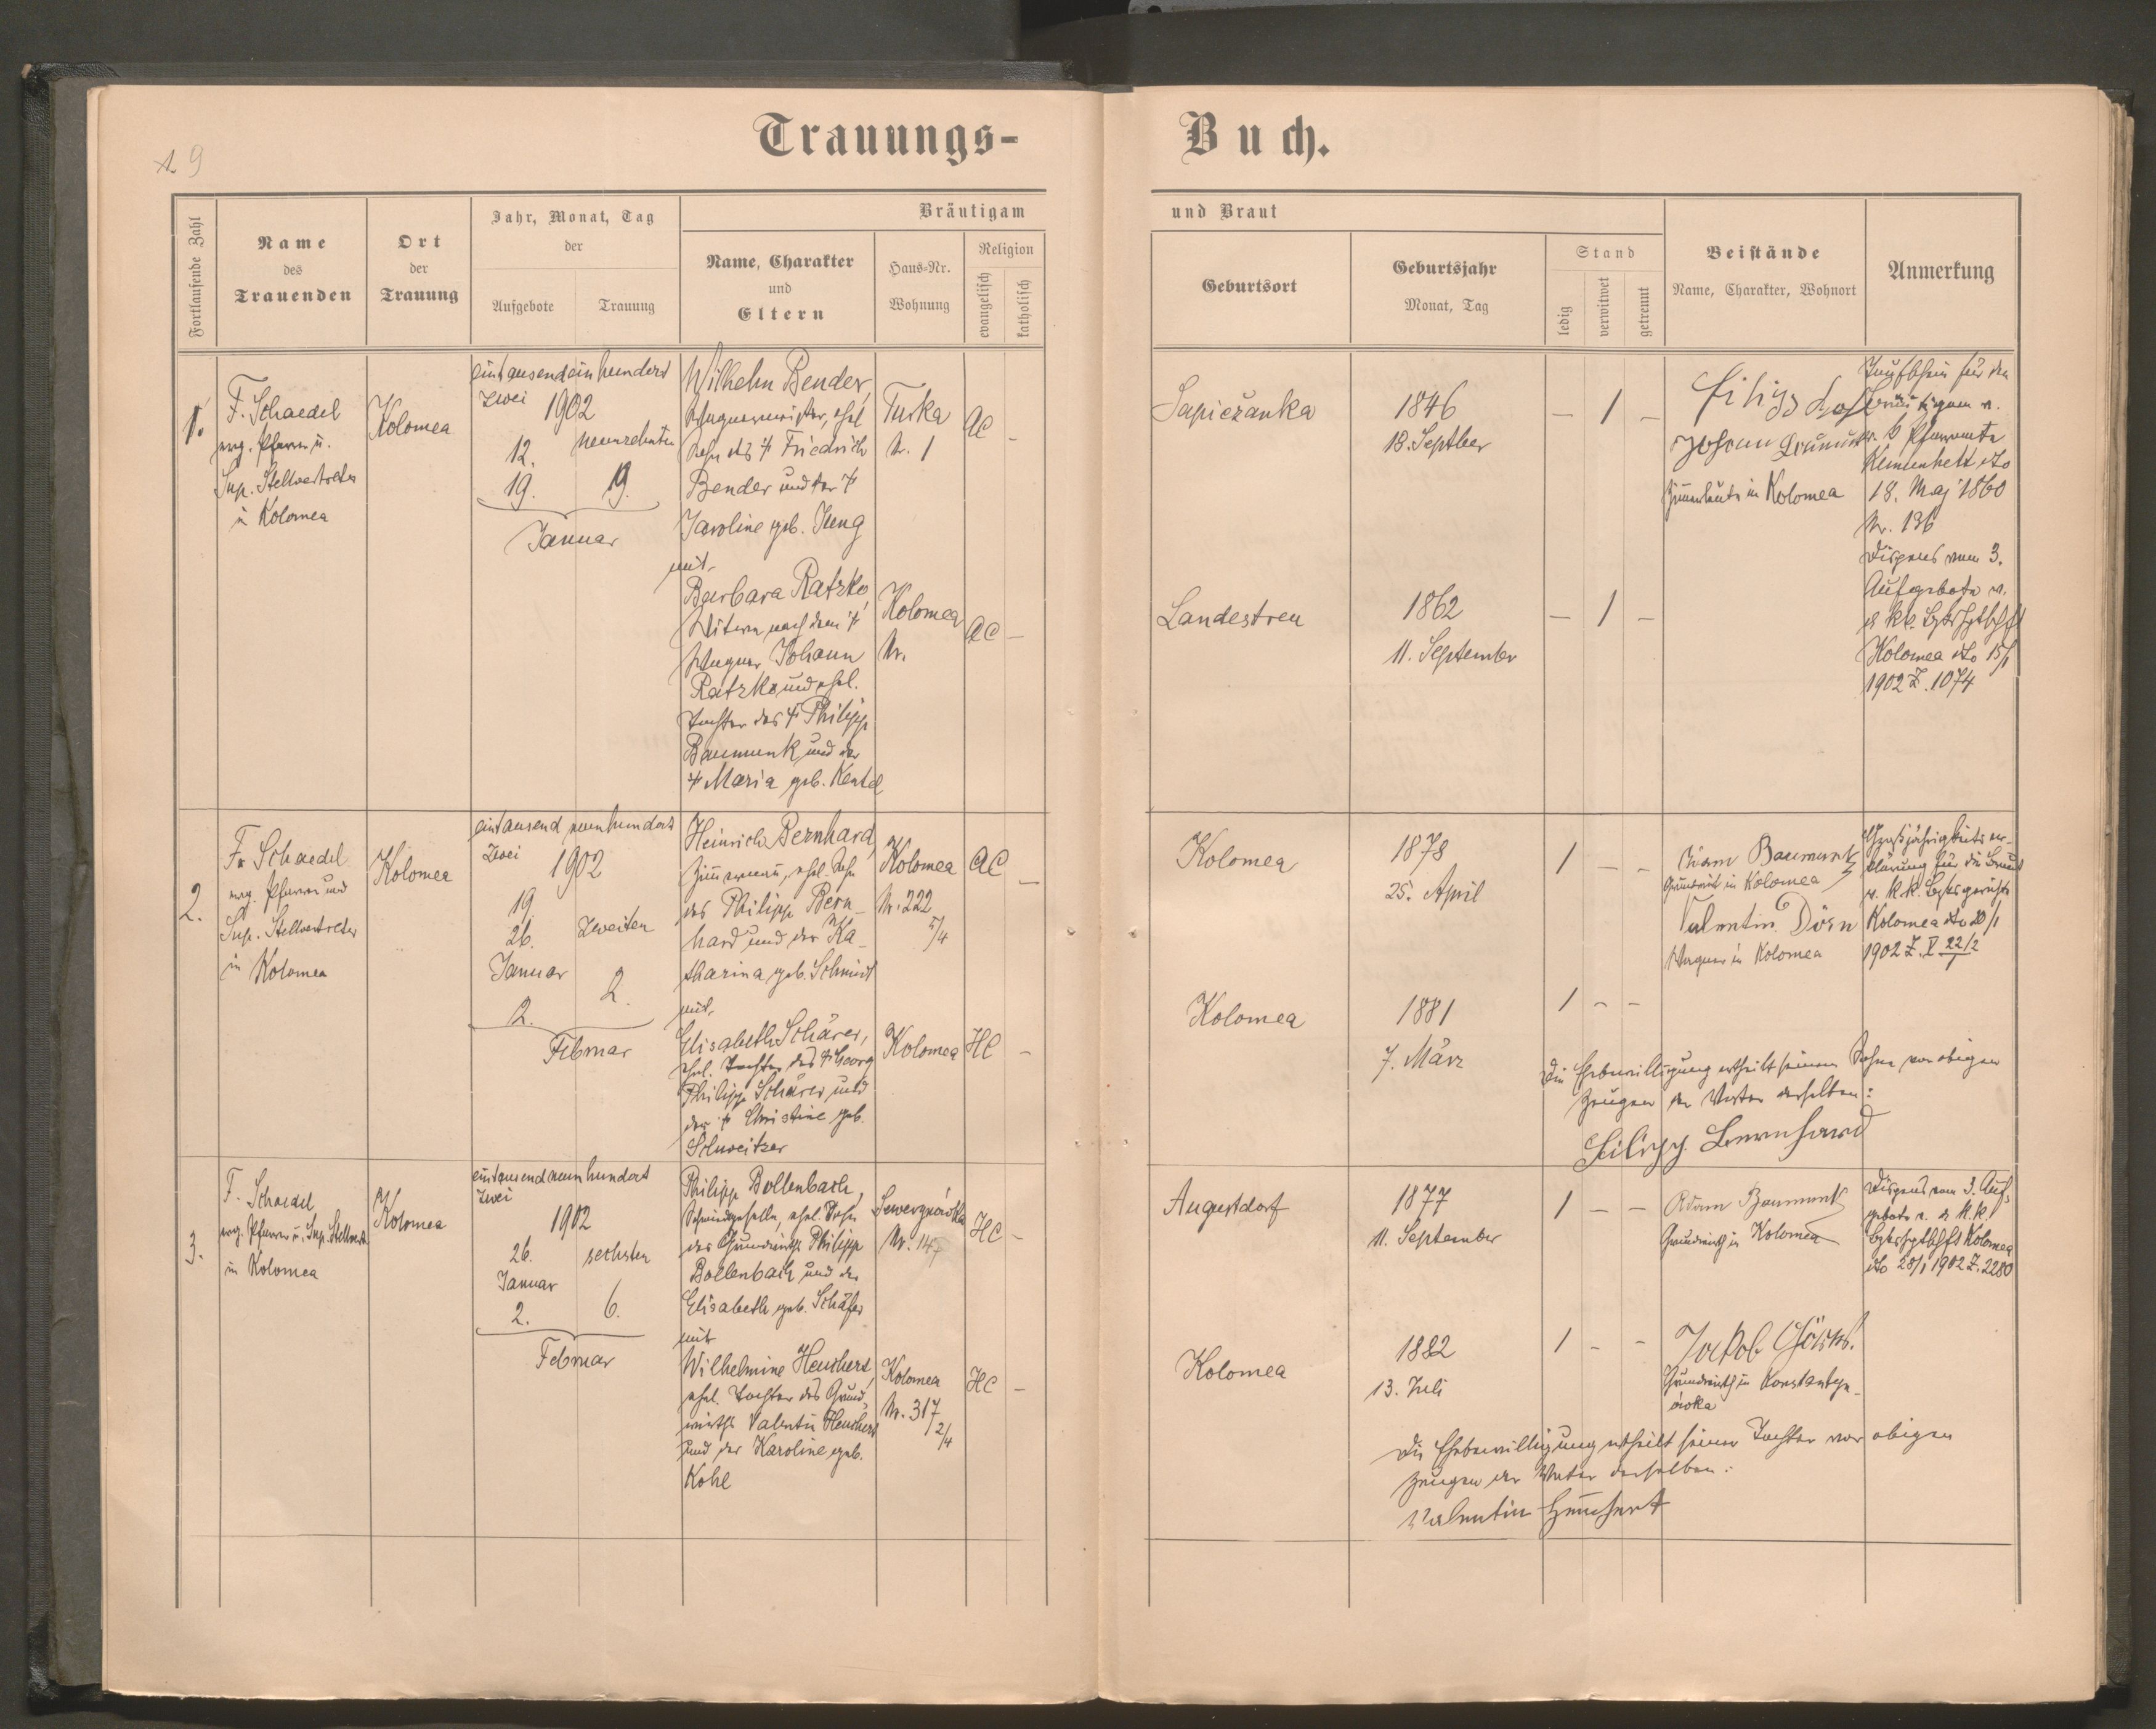 19
Trauungs-
Buch.
Fortlaufende Zahl
Name
des
Trauenden
Ort
der
Trauung
Jahr, Monat, Tag
der
Aufgebote
Trauung
Bräutigam
Name, Charakter
und
Eltern
Haus-Nr.
Wohnung
Religion
evangelisch
katholisch
und Braut
Geburtsort
Geburtsjahr
Monat, Tag
Stand
ledig
verwitwet
getrennt
Beistände
Name, Charakter, Wohnort
Anmerkung
1.
F. Schaedel
evg. Pfarrer u.
Sup. Stellvertreter
in Kolomea
Kolomea
eintausendeinhundert
zwei
1902
12.
neunzehnten
19.
19.
Januar
Wilhelm Bender,
Wagnermeister, ehel
Sohn des † Friedrich
Bender und der †
Karoline geb. Jung
mit
Barbara Ratzko,
Witwe nach dem †
Wagner Johann
Ratzko und ehel.
Tochter des † Philipp
Baumunk und der
† Maria geb. Kentel
Turka
Nr. 1
AC
–
Kolomea
Nr.
AC
–
Sapieżanka
1846
18. Septber
– 1 –
Landestreu
1862
11. September
– 1 –
Johann
Zimmerleute in Kolomea
Taufschein für den
Bräutigam v.
Pfarramte
18. Maj 1860
Nr. 136
Dispens vom 3.
Aufgebote v.
d. k.k.
Kolomea dto 15/1
1902 Z. 1074
2.
F. Schaedel
evg. Pfarrer und
Sup. Stellvertreter
in Kolomea
Kolomea
eintausend neunhundert
zwei
1902
19.
26.
zweiten
Januar
2.
2.
Februar
Heinrich Bernhard,
Zimmermann, ehel. Sohn
des Philipp Bern-
hard und der Ka-
tharina geb. Schmidt
mit
Elisabeth Schärer,
ehel. Tochter des † Georg
Philipp Schärer und
der † Christine geb.
Schweitzer
Kolomea
Nr. 222
5/4
AC
–
Kolomea
HC
–
Kolomea
1878
25. April
1 – –
Kolomea
1881
7. März
1 – –
Adam Baumunk
Grundwirt in Kolomea
Valentin Dörn
Wagner in Kolomea
Großjährigkeitser-
klärung für die Braut
v. k.k. Bzksgericht
Kolomea dto 20/1
1902 Z. V 22/2
Die Ehebewilligung ertheilt seinem Sohne vor obigen
Zeugen der Vater desselben:
Filipp Bernhard
3.
F. Schaedel
evg. Pfarrer u. Sup. Stellvert.
in Kolomea
Kolomea
eintausend neunhundert
zwei
1902
26.
sechsten
Januar
2.
6.
Februar
Philipp Bollenbach,
Schmiedgeselle, ehel. Sohn
des Grundwirths Philipp
Bollenbach und der
Elisabeth geb. Schäfer
mit
Wilhelmine Heuchert,
ehel. Tochter des Grund-
wirths Valentin Heuchert
und der Karoline geb.
Kohl
Sewerynówka
Nr. 147
HC
–
Kolomea
Nr. 317
2/4
HC
–
Augustdorf
1877
11. September
1 – –
Kolomea
1882
13. Juli
1 – –
Adam Baumunk
Grundwirth in Kolomea
Jakob
Grundwirth in Konstantyn-
ówka
Dispens vom 3. Auf-
gebote v. d. k.k.
Kolomea
dto 28/1 1902 Z. 2280
Die Ehebewilligung ertheilt seiner Tochter vor obigen
Zeugen der Vater derselben:
Valentin Heuchert